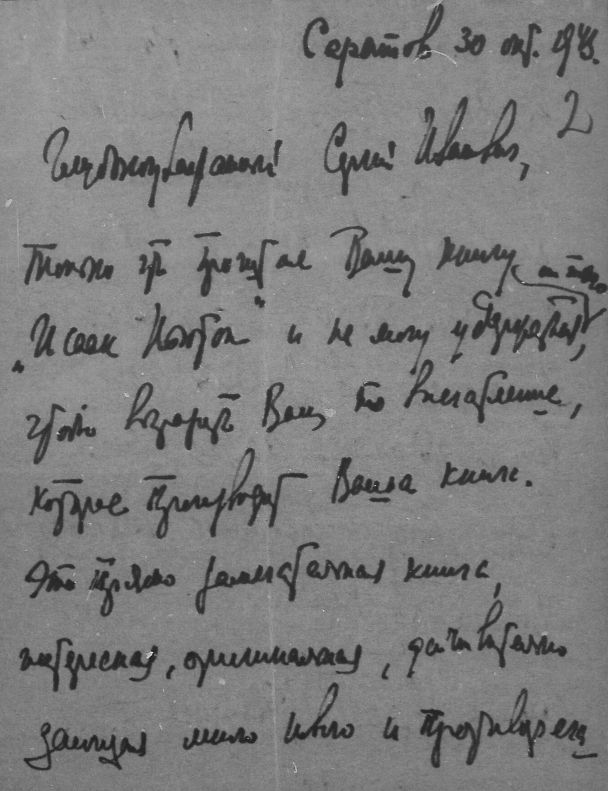 Саратов 30 окт. 1943.
2
Глубокоуважаемый Сергей Иванович,
Только что прочитал Вашу книгу
„Исаак Ньютон“ и не могу удержаться, от того,
чтобы выразить Вам то впечатление,
которое производит Ваша книга.
Это прямо замечательная книга,
интересная, оригинальная, действительно
дающая много и